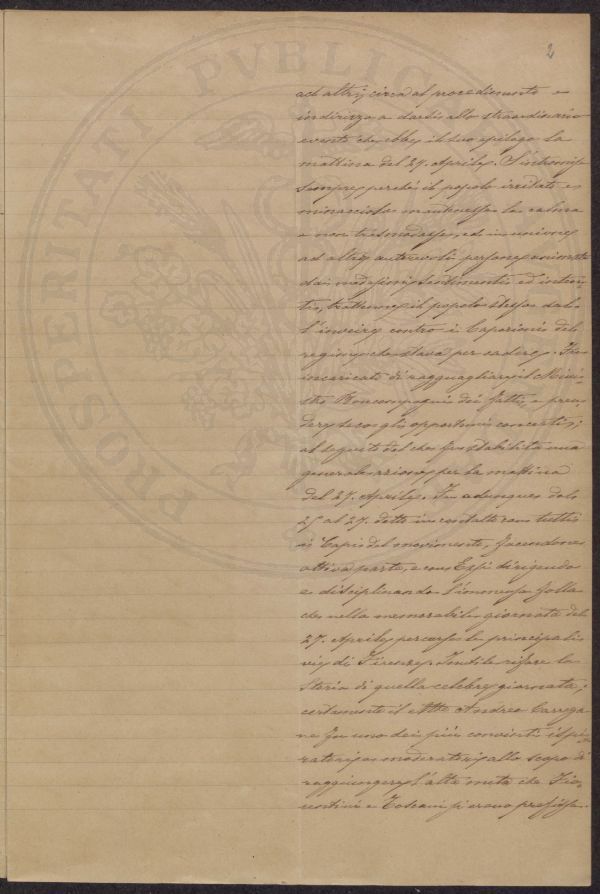 2
PROSPERITATI PVBLICAE
ad altri, circa al procedimento e
indirizzo a darsi allo straordinario
evento che ebbe il suo epilogo la
mattina del 27. Aprile. S'intromise
sempre perchè il popolo irritato e
minaccioso mantenesse la calma
e non trasmodasse, ed in unione
ad altre autorevoli persone animate
dai medesimi sentimenti ed intenti,
trattenne il popolo stesso dal-
l'inveire contro i Caporioni del
regime che stava per cadere. Fu
incaricato di ragguagliare il Mini-
stro Boncompagni dei fatti, e pren-
dere seco gli opportuni concerti;
al seguito del che fu stabilita una
generale azione per la mattina
del 27. Aprile. Fu adunque dal
25 al 27. detto in contatto con tutti
i Capi del movimento, facendone
attiva parte, e con Essi dirigendo
e disciplinando l'immensa folla
che nella memorabile giornata del
27. Aprile percorse le principali
vie di Firenze. Inutile rifare la
Storia di quella celebre giornata;
certamente il Andrea Carrega-
ne fu uno dei più convinti ispi-
ratori e moderatori allo scopo di
raggiungere l'alta meta che Fio-
rentini e Toscani si erano prefissa.